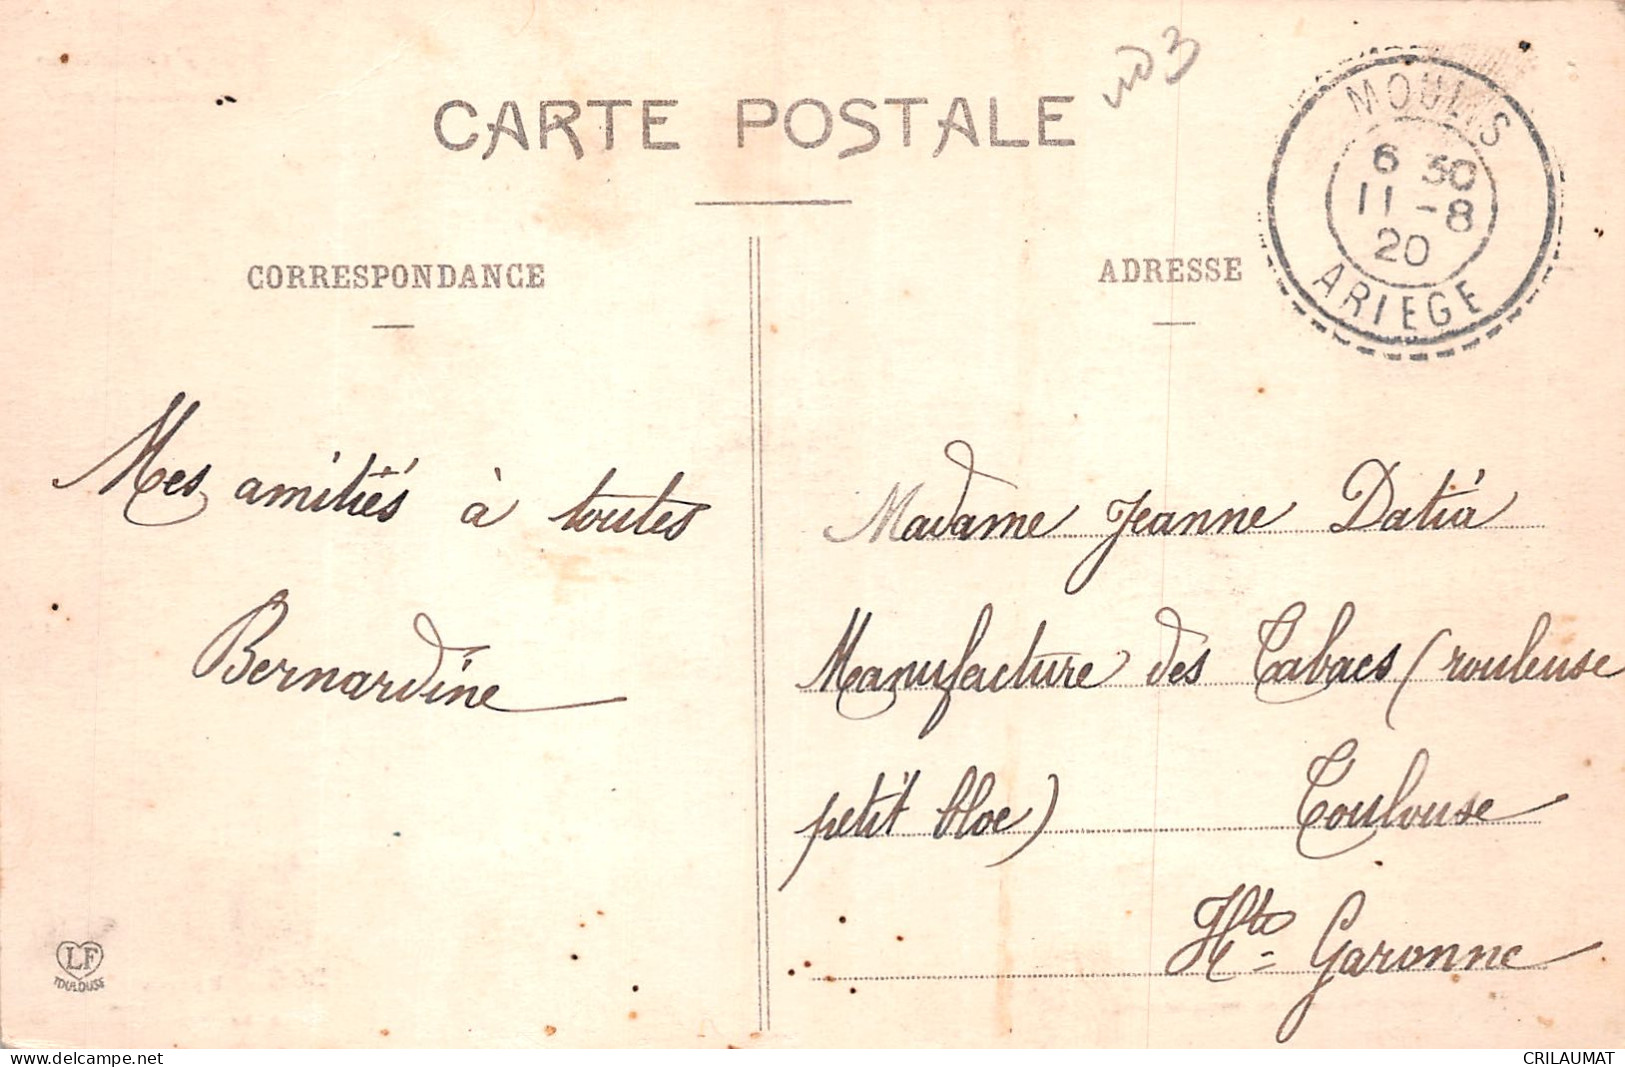 CARTE POSTALE
MOULIS
6 30
11 -8
20
ARIEGE
CORRESPONDANCE
ADRESSE
Mes amitiés à toutes
Bernardine
Madame Jeanne Datià
Manufacture des Tabacs (rouleuse
petit bloc) Toulouse
Hte Garonne
LF
TOULOUSE
delcampe.net
CRILAUMAT